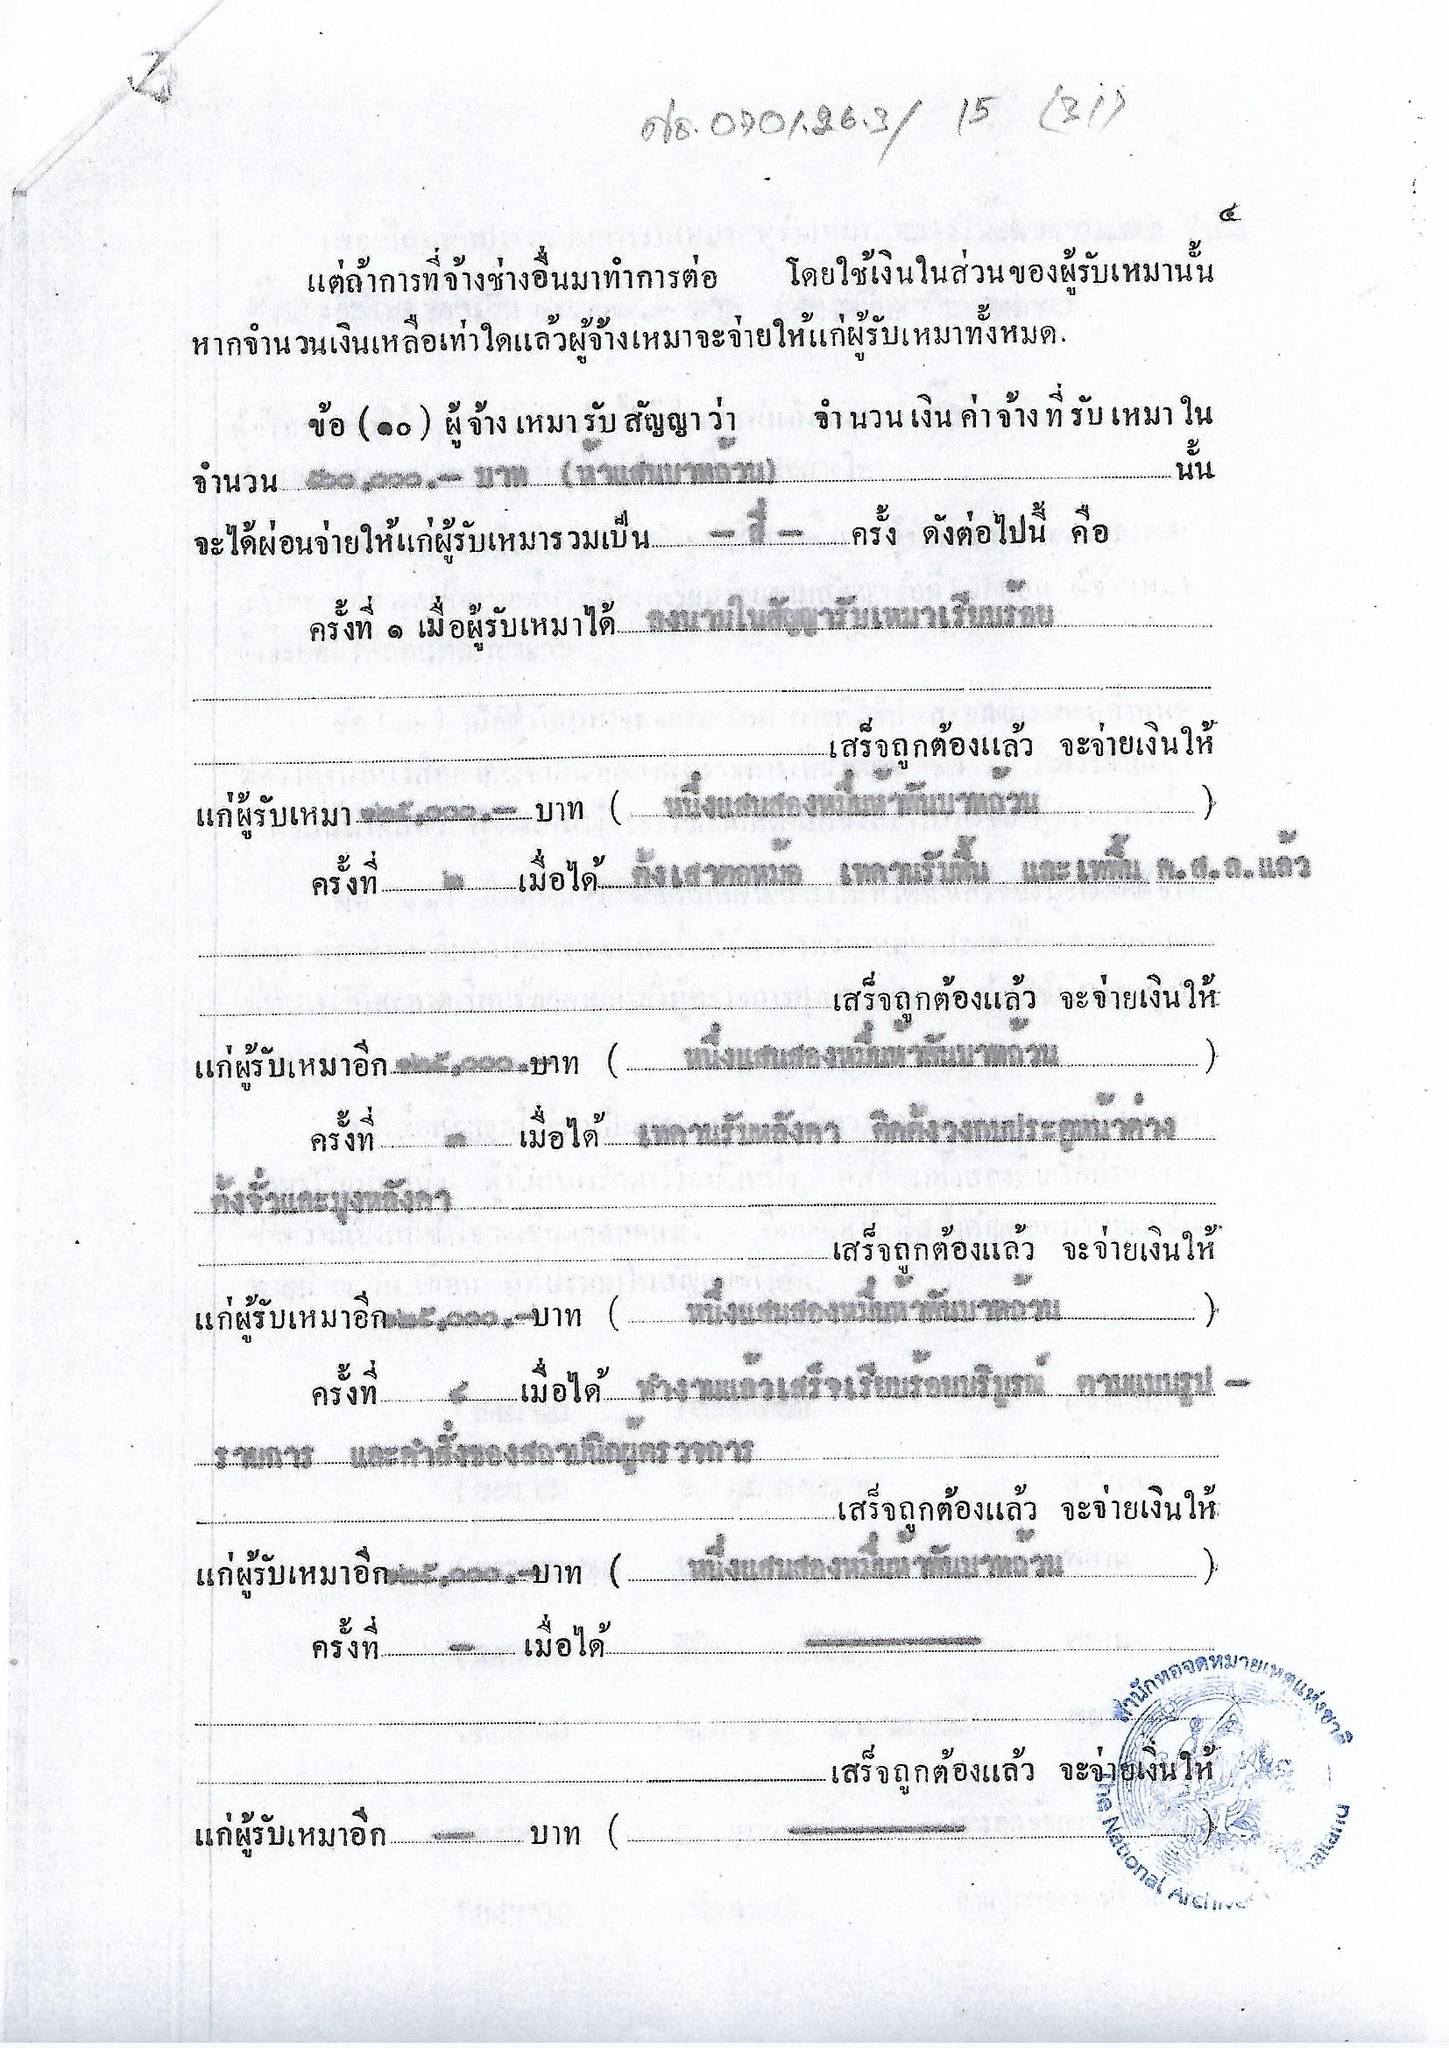 ศธ.0701.26.3/ 15 (21)
๔
แต่ถ้าการที่จ้างช่างอื่นมาทำการต่อ โดยใช้เงินในส่วนของผู้รับเหมานั้น
หากจำนวนเงินเหลือเท่าใดแล้วผู้จ้างเหมาจะจ่ายให้แก่ผู้รับเหมาทั้งหมด.
ข้อ (๑๐) ผู้จ้างเหมารับสัญญาว่า จำนวนเงินค่าจ้างที่รับเหมาใน
จำนวน ๕๐๐,๐๐๐.- บาท (ห้าแสนบาทถ้วน) นั้น
จะได้ผ่อนจ่ายให้แก่ผู้รับเหมารวมเป็น - สี่ - ครั้ง ดังต่อไปนี้ คือ
ครั้งที่ ๑ เมื่อผู้รับเหมาได้ ลงนามในสัญญารับเหมาเรียบร้อย
เสร็จถูกต้องแล้ว จะจ่ายเงินให้
แก่ผู้รับเหมา ๑๒๕,๐๐๐.- บาท ( หนึ่งแสนสองหมื่นห้าพันบาทถ้วน )
ครั้งที่ ๒ เมื่อได้ ตั้งเสาตอหม้อ เทคานรับพื้น และเทพื้น ค.ส.ล.แล้ว
เสร็จถูกต้องแล้ว จะจ่ายเงินให้
แก่ผู้รับเหมาอีก ๑๒๕,๐๐๐.- บาท ( หนึ่งแสนสองหมื่นห้าพันบาทถ้วน )
ครั้งที่ ๓ เมื่อได้ เทคานรับหลังคา ติดตั้งวงกบประตูหน้าต่าง
ตั้งจั่วและมุงหลังคา
เสร็จถูกต้องแล้ว จะจ่ายเงินให้
แก่ผู้รับเหมาอีก ๑๒๕,๐๐๐.- บาท ( หนึ่งแสนสองหมื่นห้าพันบาทถ้วน )
ครั้งที่ ๔ เมื่อได้ ทำงานแล้วเสร็จเรียบร้อยบริบูรณ์ ตามแบบรูป -
รายการ และคำสั่งของสถาปนิกผู้ตรวจการ
เสร็จถูกต้องแล้ว จะจ่ายเงินให้
แก่ผู้รับเหมาอีก ๑๒๕,๐๐๐.- บาท ( หนึ่งแสนสองหมื่นห้าพันบาทถ้วน )
ครั้งที่ - เมื่อได้
เสร็จถูกต้องแล้ว จะจ่ายเงินให้
แก่ผู้รับเหมาอีก - บาท ( )
สำนักหอจดหมายเหตุแห่งชาติ
The National Archives Thailand